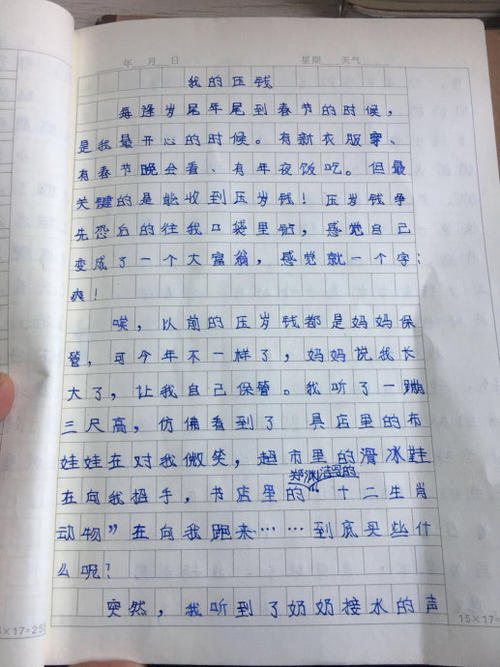 年 月 日 星期 天气
我的压钱
每逢岁尾年尾到春节的时候，
是我最开心的时候。有新衣服穿、
有春节晚会看、有年夜饭吃。但最
关键的是能收到压岁钱！压岁钱争
先恐后的往我口袋里钻，感觉自己
变成了一个大富翁，感觉就一个字：
爽！
唉，以前的压岁钱都是妈妈保
管，可今年不一样了，妈妈说我长
大了，让我自己保管。我听了一蹦
三尺高，仿佛看到了 具店里的布
娃娃在对我微笑，超市里的滑冰鞋
郑渊洁写的
在向我招手，书店里的“十二生肖
动物”在向我跑来……到底买些什
么呢？
突然，我听到了奶奶接水的声
×17=25
15×17=